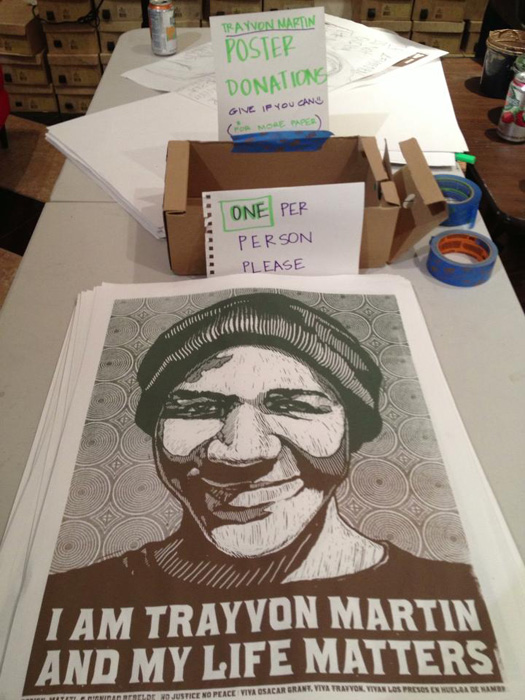 TRAYVON MARTIN
POSTER
DONATIONS
GIVE IF YOU CAN
(+ FOR MORE PAPER)
ONE PER
PERSON
PLEASE
I AM TRAYVON MARTIN
AND MY LIFE MATTERS
DIGNIDAD REBELDE NO JUSTICE NO PEACE! VIVA OSACAR GRANT, VIVA TRAYVON, VIVAN LOS PRESOS EN HUELGA DE HAMBR